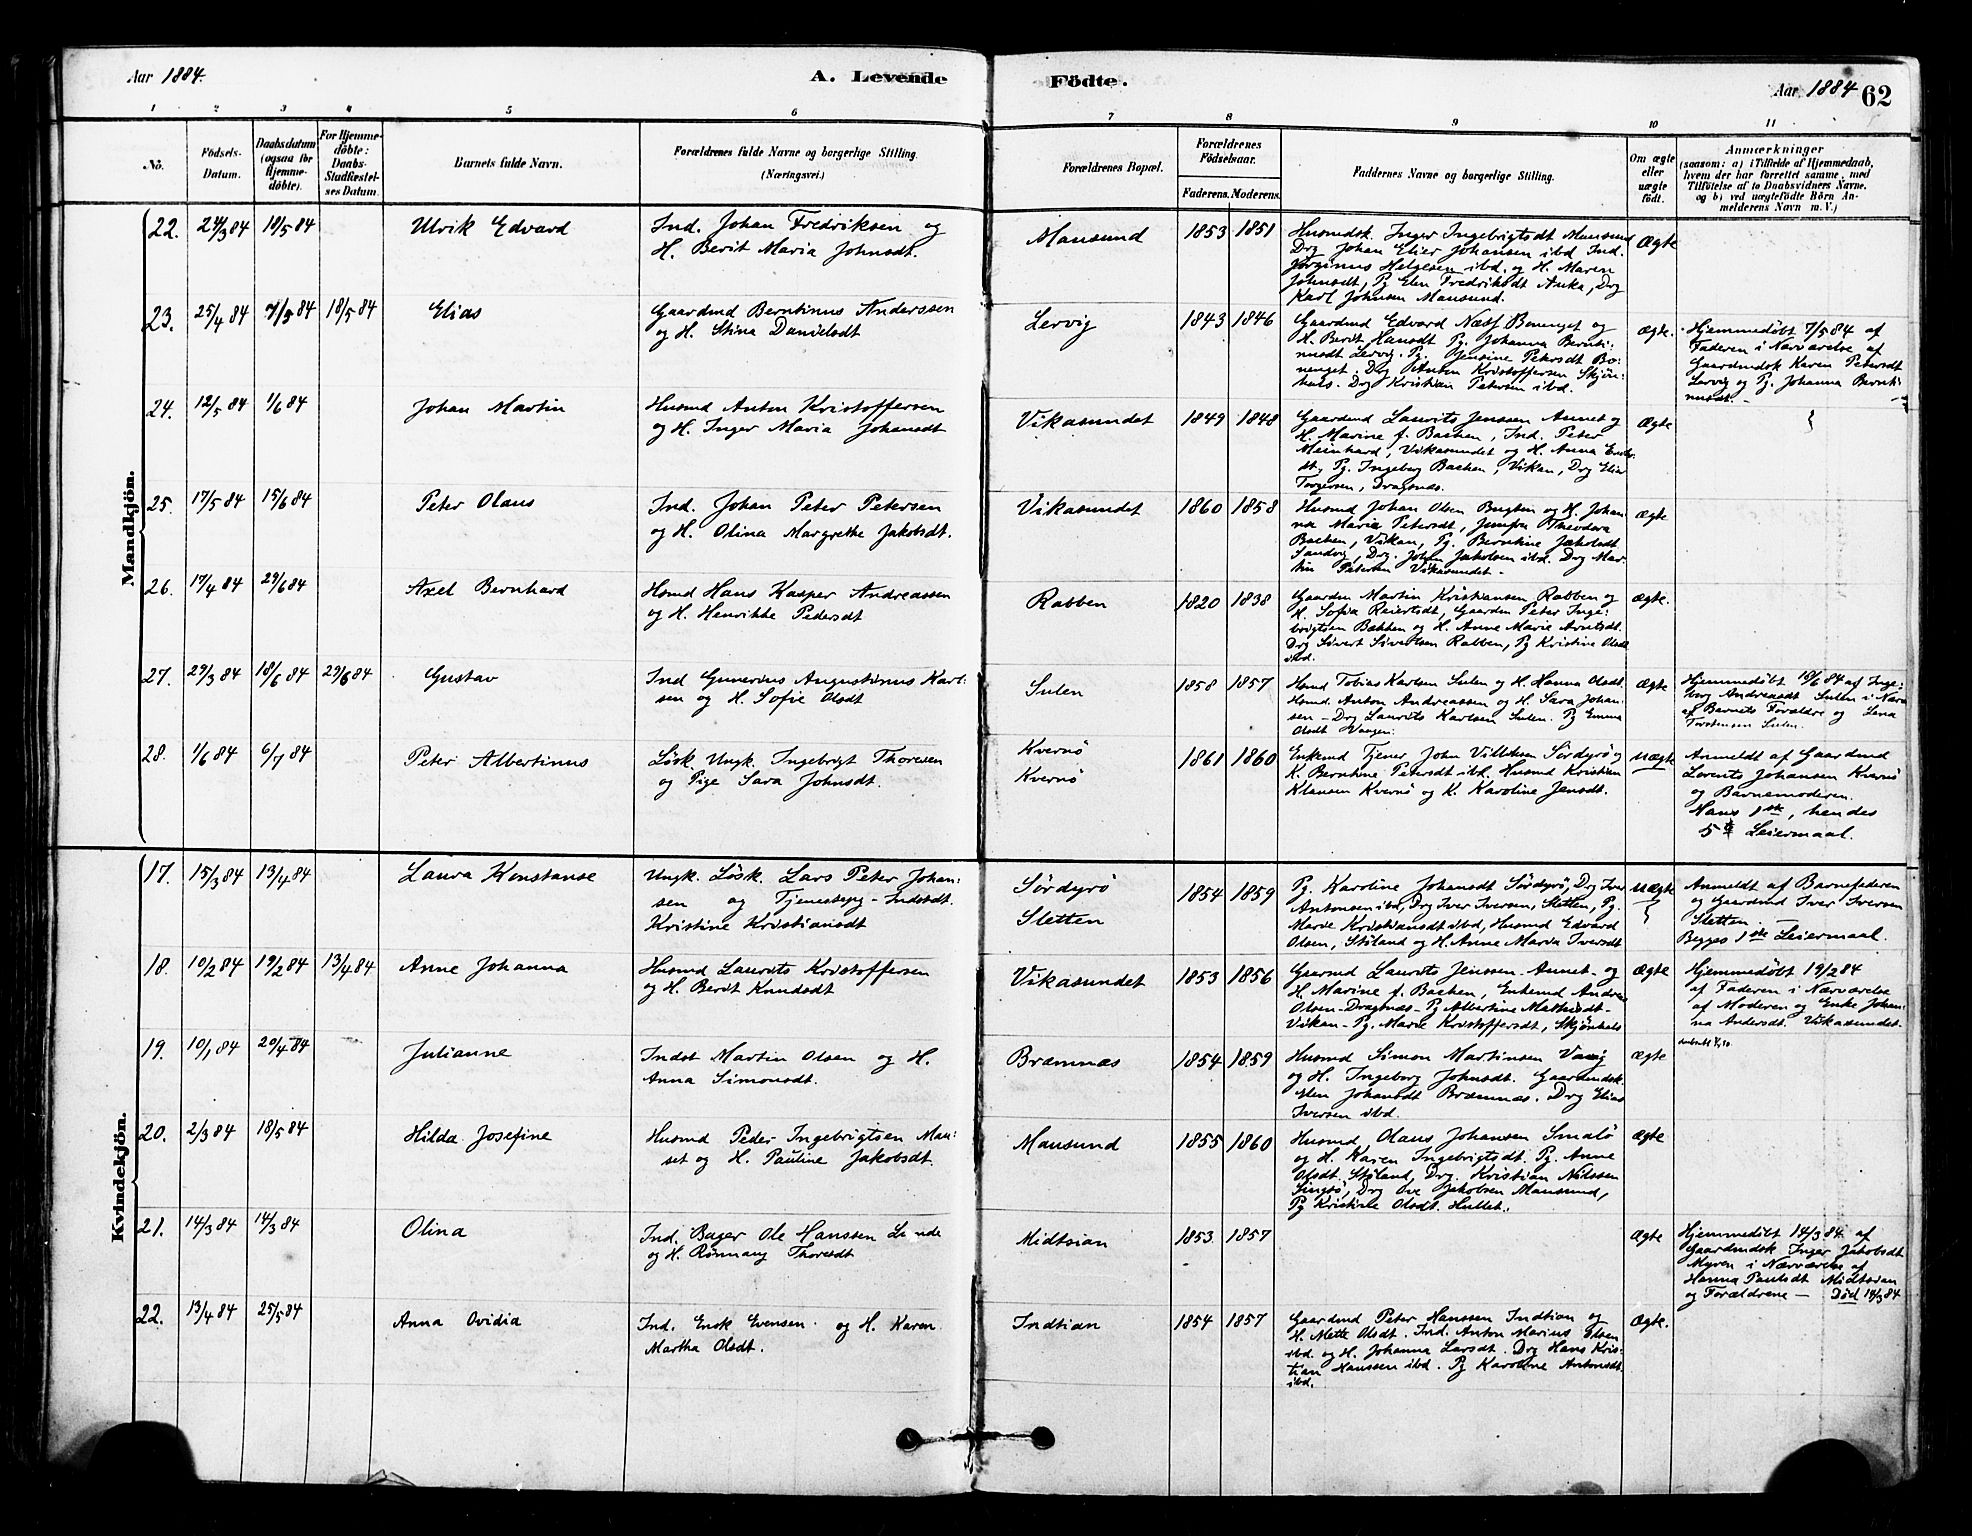 Aar 1884.
A. Levende Födte.
Aar 1884
62
1 2 3 4 5 6 7 8 9 10 11
No.
Födsels-Datum.
Daabsdatum (ogsaa for Hjemme-döbte).
For Hjemme-döbte: Daabs-Stadfæstel-ses Datum.
Barnets fulde Navn.
Forældrenes fulde Navne og borgerlige Stilling.
(Næringsvei.)
Forældrenes Bopæl.
Forældrenes Födselsaar.
Faderens. Moderens.
Faddernes Navne og borgerlige Stilling.
Om ægte eller uægte födt.
Anmærkninger
(saasom: a) i Tilfælde af Hjemmedaab,
hvem der har forrettet samme, med
Tilföielse af to Daabsvidners Navne,
og b) ved uægtefödte Börn An-
melderens Navn m. V.)
Mandkjön.
22. 24/3 84 18/5 84 Ulrik Edvard
Ind. Johan Fredriksen og
H. Berit Maria Johnsdt.
Mausund 1853 1851
Husmdsk. Inger Ingebrigtsdt Mausund
Drg Johan Elier Johansen ibd Ind.
Jörginus Helgesen ibd. og H. Maren
Johnsdt, Pg Elen Fredriksdt Auka, Drg
Karl Johnsen Mausund.
Ægte
23. 25/4 84 7/5 84 18/5 84 Elias
Gaardmd Berntinus Anderssen
og H. Stina Danielsdt
Lervig 1843 1846
Gaardmd Edvard Næss Bonenget og
H. Berit Hansdt Pg. Johanna Bernti-
nusdt Lervig. Pg. Jensine Petersdt Bo-
nenget. Drg Anton Kristoffersen Skjön-
hals. Drg Kristian Petersen ibd.
ægte.
Hjemmedöbt 7/5 84 af
Faderen i Nærværelse af
Gaardmdsk Karen Petersdt
Lervig og Pg. Johanna Bernti-
nusdt.
24. 12/5 84 1/6 84 Johan Martin
Husmd Anton Kristoffersen
og H. Inger Maria Johansdt
Vikasundet 1849 1848
Gaardmd Laurits Jenssen Annet og
H. Marine f. Bachen, Ind. Peter
Meinhard, Vikasundet og H. Anna
Pg. Ingeborg Bachen, Vikan, Drg Elias
Torgersen, Dragsnæs.
Ægte
25. 17/5 84 15/6 84 Peter Olaus
Ind. Johan Peter Petersen
og H. Olina Margrethe Jakobsdt.
Vikasundet 1860 1858
Husmd Johan Olsen Bugten og H. Johan-
na Maria Petersdt, Jomfru Theodora
Bachen, Vikan, Pg. Berntine Jakobsdt
Sandvig, Drg. Johan Jakobsen ibd. Drg Mar-
tin Petersen Vikasundet
ægte
26. 17/4 84 29/6 84 Axel Bernhard
Hsmd Hans Kasper Andreassen
og H. Henrikke Pedersdt
Rabben 1820 1838
Gaardm Martin Kristiansen Rabben og
H. Sofia Raiertsdt, Gaardm Peter Inge-
brigtsen Bakken og H. Anne Marie Arntsdt.
Drg Sivert Sivertsen Rabben, Pg Kristine Olsdt
ibd.
ægte.
27. 29/3 84 18/6 84 29/6 84 Gustav
Ind Gunerius Augustinus Karl-
sen og H. Sofie Olsdt
Sulen 1858 1857
Hsmd Tobias Karlsen Sulen og H. Hanna Olsdt.
Hsmd. Anton Andreassen og H. Sara Johan-
sen - Drg Laurits Karlsen Sulen. Pg Emma
Olsdt Vaagen.
ægte
Hjemmedöbt 18/6 84 af Inge-
borg Andreasdt Sulen i Nærv
af Barnets Forældre og Lena
Torstensen Sulen.
28. 1/6 84 6/7 84 Peter Albertinus
Lösk. Ungk. Ingebrigt Thoresen
og Pige Sara Johnsdt.
Kvernö
Kvernö
1861 1860
Enkemd Tjener John Villatsen Sördyrö og
K. Berntine Petersdt ibd. Husmd Kristian
Klausen Kvernö og K. Karoline Jensdt.
uægte
Anmeldt af Gaardmd
Lorents Johansen Kvernö
og Barnemoderen.
Hans 1ste, hendes
5te Leiermaal.
Kvindekjön.
17. 15/3 84 13/4 84 Laura Konstanse
Ungk. Lösk. Lars Peter Johan-
sen og Tjenestepg - Indstdt.
Kristine Kristiansdt
Sördyrö
Sletten
1854 1859
Pg. Karoline Johansdt Sördyrö, Drg Iver
Antonsen ibd, Drg Iver Iversen, Sletten, Pg.
Marie Kristiansdt ibd, Husmd Edvard
Olsen, Stöland og H. Anne Maria Iversdt
uægte
Anmeldt af Barnefaderen
og Gaardmd Iver Iversen
Sletten
Begges 1ste Leiermaal.
18. 10/2 84 19/2 84 13/4 84 Anne Johanna
Husmd Laurits Kristoffersen
og H. Berit Knudsdt
Vikasundet 1853 1856
Gaarmd Laurits Jenssen - Annet - og
H. Marine f. Bachen, Enkemd Andrea
Olsen - Dragsnæs - Pg Albertine Mathisdt -
Vikan - Pg. Marie Kristoffersdt, Skjönhals
ægte
Hjemmedöbt 19/2 84
af Faderen i Nærværelse
af Moderen og Enke Johan-
na Andersdt. Vikasundet
19. 10/1 84 20/4 84 Julianne
Indst Martin Olsen og H.
Anna Simonsdt.
Bræmnæs 1854 1859
Husmd Simon Martinsen Vaag
og H. Ingeborg Johnsdt. Gaardmdsk.
Elen Johansdt Bræmnæs. Drg Elias
Iversen ibd.
ægte
20. 2/3 84 18/5 84 Hilda Josefine
Husmd Peder Ingebrigtsen Mau-
set og H. Pauline Jakobsdt.
Mausund 1855 1860
Husmd Olaus Johansen Smalö
og H. Karen Ingebrigtsdt. Pg. Anne
Olsdt. Stöland, Drg. Kristian Nilssen
Singsö, Drg Ove Jakobsen Mausund,
Pg Kristine Olsdt. Hullet.
ægte
21. 14/3 84 14/3 84 Olina
Ind. Bager Ole Hanssen Linde
og H. Rönnaug Thoresdt
Midtsian 1853. 1857
Ægte
Hjemmedöbt 14/3 84. af
Gaardmdsk Inger Jakobsdt
Myren i Nærværelse af
Hanna Paulsdt Midtsian
og Forældrene — Död 14/3 84
22. 13/4 84 25/5 84 Anna Ovidia
Ind. Enok Evensen. og H. Karen
Martha Olsdt.
Indtian 1854 1857
Gaardmd Peter Hanssen Indtian og
H. Mette Olsdt. Ind. Anton Marius Olsen
ibd. og H. Johanna Larsdt. Drg Hans Kris-
tian Hanssen ibd. Pg Karoline Antonsdt
ibd.
Ægte.